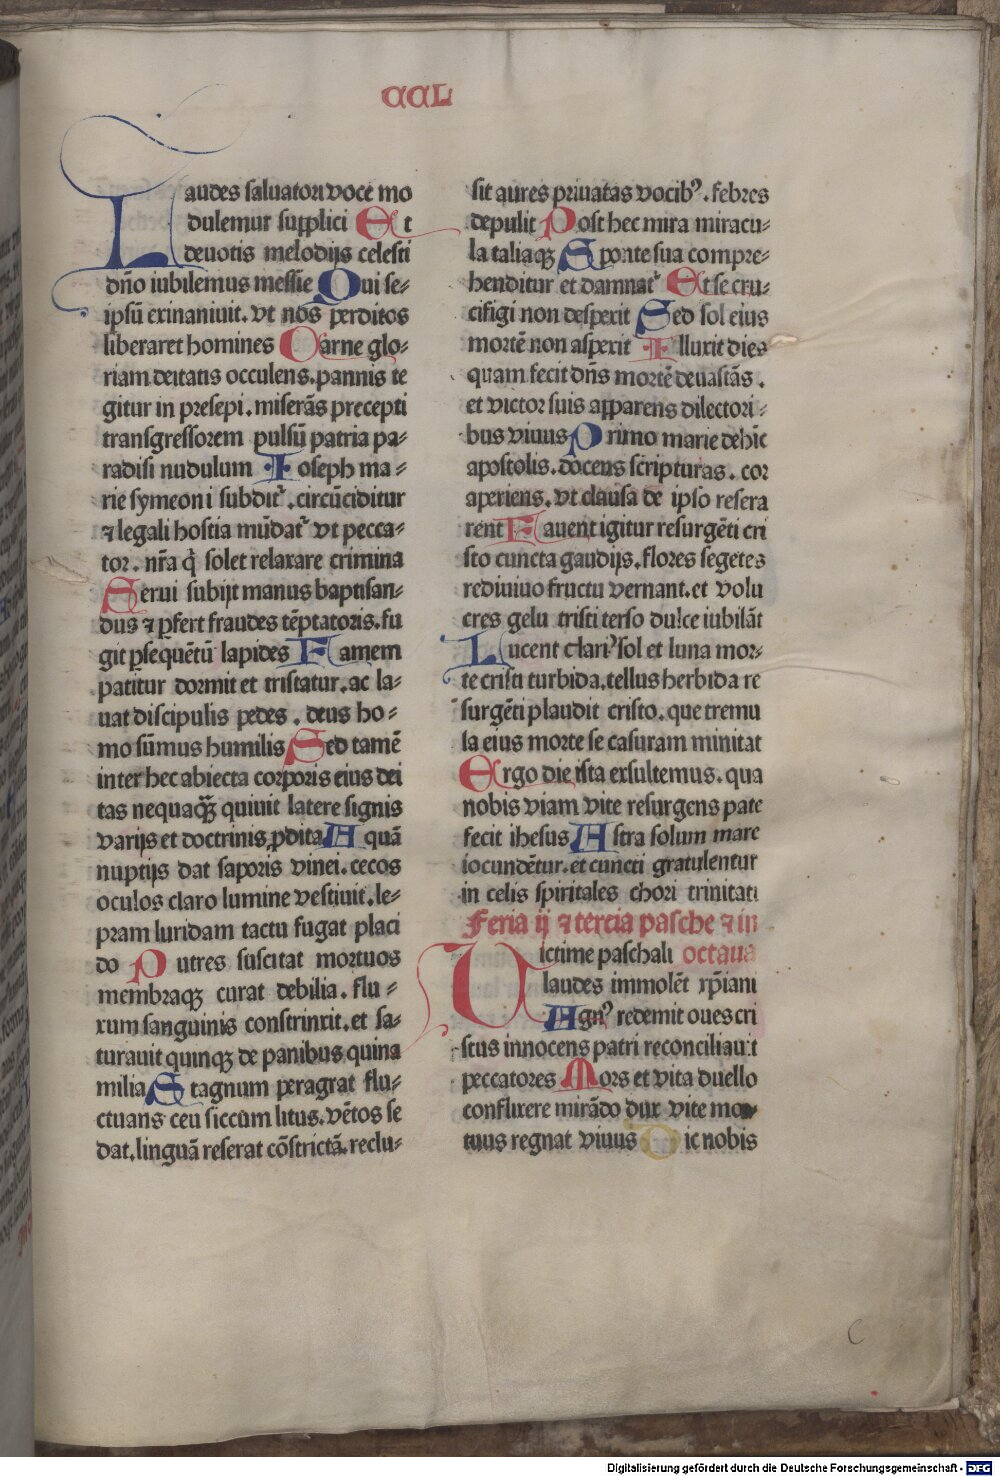 CCL
Laudes saluatori voce mo
dulemur supplici Et
deuotis melodijs celesti
dño iubilemus messie Qui se-
ipsū exinaniuit. vt nos perditos
liberaret homines Carne glo-
riam deitatis occulens. pannis te
gitur in presepi. miserās precepti
transgressorem pulsū patria pa-
radisi nudulum Ioseph ma-
rie symeoni subditʳ. circūciditur
⁊ legali hostia mūdatʳ vt pecca-
tor. nr̄a q̇ solet relaxare crimina
Serui subijt manus baptisan-
dus ⁊ ꝑfert fraudes tēptatoris. fu
git ꝑsequētū lapides Famem
patitur dormit et tristatur. ac la-
uat discipulis pedes. deus ho-
mo sūmus humilis Sed tamē
inter hec abiecta corporis eius dei
tas nequaꝙ̄ quiuit latere signis
varijs et doctrinis ꝓdita Aquā
nuptijs dat saporis vinei. cecos
oculos claro lumine vestiuit. le-
pram luridam tactu fugat placi
do Putres suscitat mortuos
membraqꝫ curat debilia. flu-
xum sanguinis constrinxit. et sa-
turauit quinqꝫ de panibus quina
milia Stagnum peragrat flu-
ctuans ceu siccum litus. vētos se
dat. linguā reserat cōstrictā. reclu-
sit aures priuatas vocibꝰ. febres
depulit Post hec mira miracu-
la talia qꝫ Sponte sua compre-
henditur et damnatʳ Et se cru-
cifigi non despexit Sed sol eius
mortē non aspexit Illuxit dies
quam fecit dn̄s mortē deuastās.
et victor suis apparens dilectori-
bus viuus Primo marie dehīc
apostolis. docens scripturas. cor
aperiens. vt clausa de ipso resera
rent Fauent igitur resurgēti cri
sto cuncta gaudijs. flores segetes
rediuiuo fructu vernant. et volu
cres gelu tristi terso dulce iubilāt
Lucent clariꝰ sol et luna mor-
te cristi turbida. tellus herbida re
surgēti plaudit cristo. que tremu
la eius morte se casuram minitat
Ergo die ista exsultemus. qua
nobis viam vite resurgens pate
fecit ihesus Astra solum mare
iocundētur. et cuncti gratulentur
in celis spiritales chori trinitati
Feria ij ⁊ tercia pasche ⁊ in
octaua
Victime paschali
laudes immolēt xp̄iani
Agnꝰ redemit oues cri
stus innocens patri reconciliauit
peccatores Mors et vita duello
conflixere mirādo dux vite mor
tuus regnat viuus Dic nobis
C
Digitalisierung gefördert durch die Deutsche Forschungsgemeinschaft - DFG